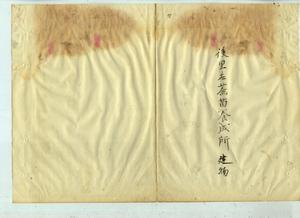 後里庄蔗苗養成所 建物